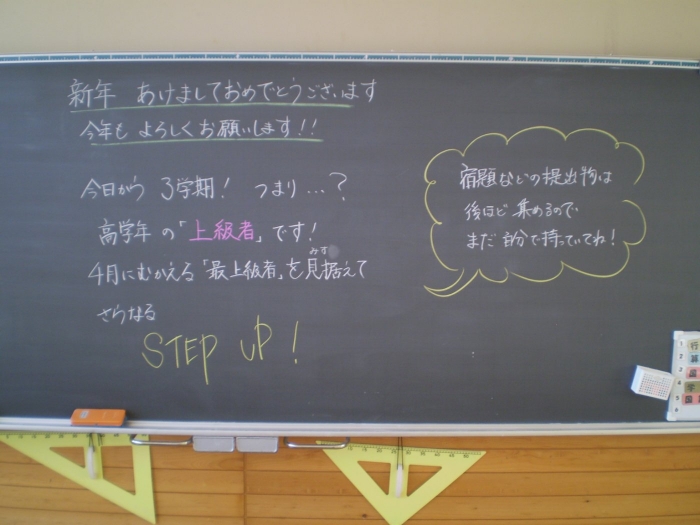 新年 あけましておめでとうございます
今年も よろしくお願いします!!
今日から 3学期! つまり…?
高学年の「上級者」です!
みす
4月にむかえる「最上級者」を見据えて
さらなる
STEP UP!
宿題などの提出物は
後ほど集めるので
まだ自分で持っていてね!
1 行
2 算
3
4 学
5 国
6